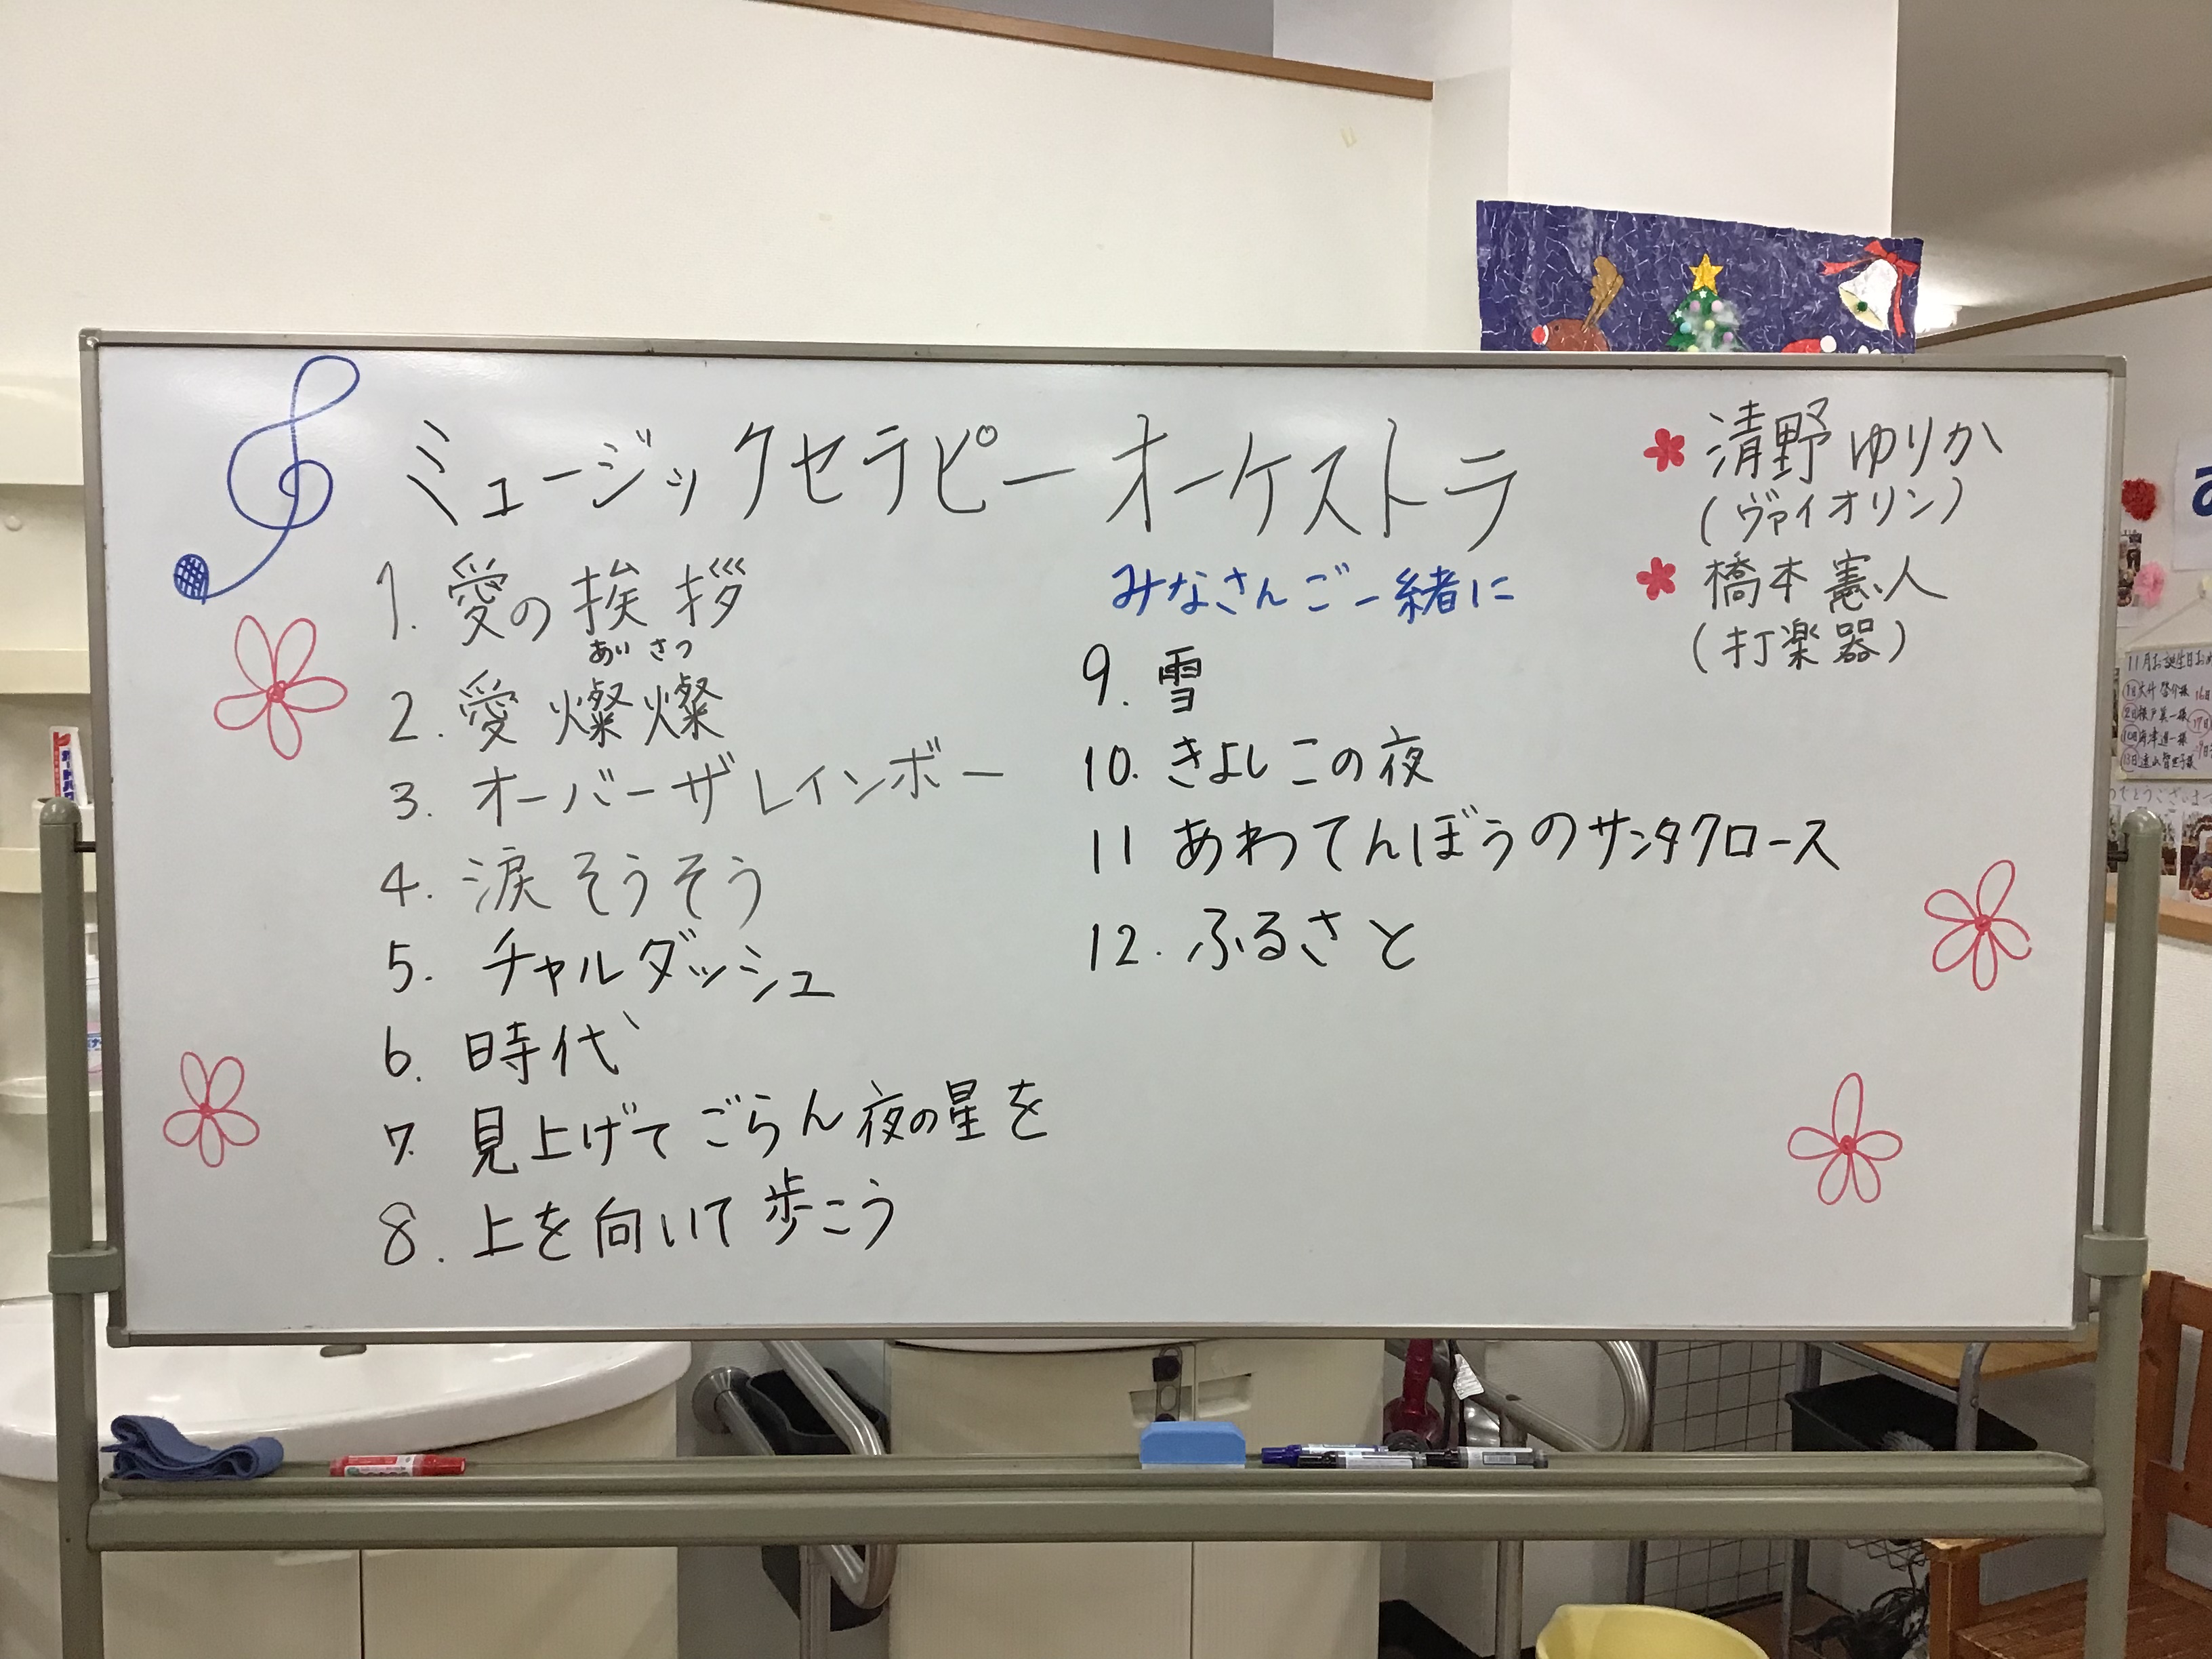 ミュージックセラピー オーケストラ
1. 愛の挨拶
あい さつ
2. 愛 燦燦
3. オーバーザレインボー
4. 涙そうそう
5. チャルダッシュ
6. 時代
7. 見上げてごらん夜の星を
8. 上を向いて歩こう
みなさんご一緒に
9. 雪
10. きよしこの夜
11 あわてんぼうのサンタクロース
12. ふるさと
清野ゆりか
(ヴァイオリン)
橋本憲人
(打楽器)
11月お誕生日お